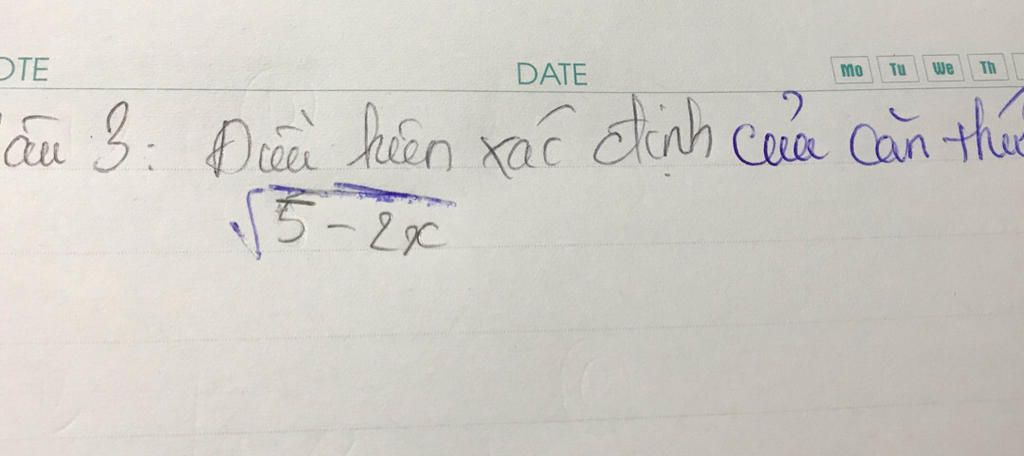 OTE DATE Mo Tu We Th
âu 3: Điều kiện xác định của căn thức
√5 - 2x